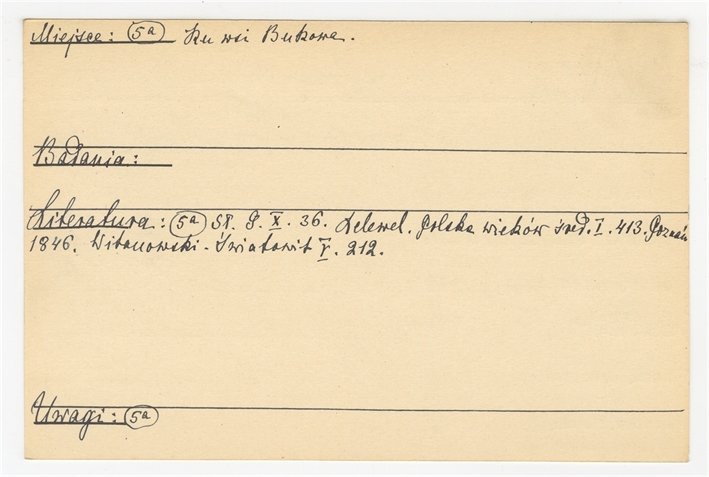 Miejsce: 5a Ku wsi Bukowa.
Badania:
Literatura: 5a Sł. G. X. 36. Lelewel. Polska wieków śred. I. 413. Poznań
1846. Witanowski - Światowit V. 212.
Uwagi: 5a